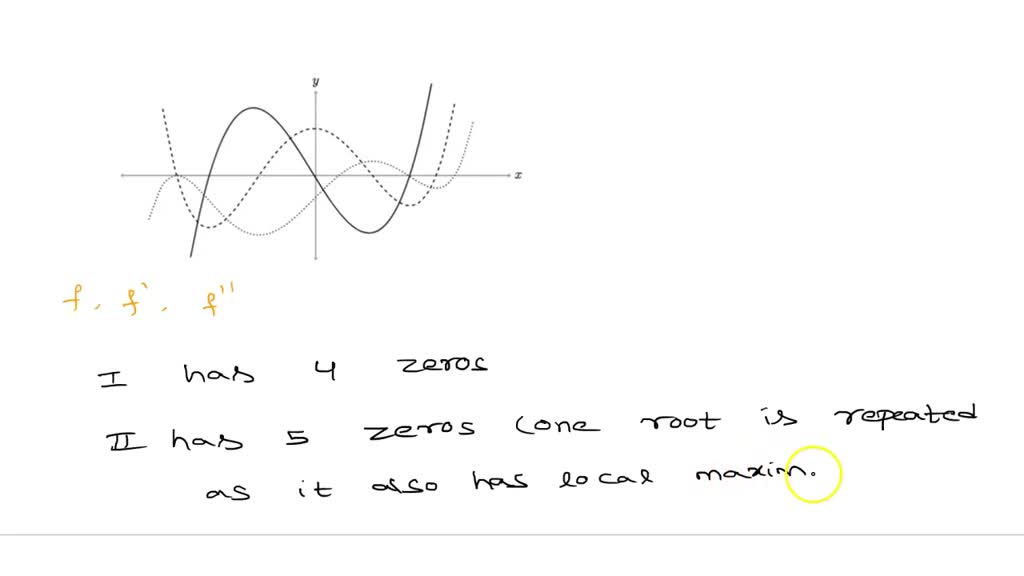 y
x
f, f', f''
I has 4 zeros
II has 5 zeros (one root is repeated
as it also has local maxim.